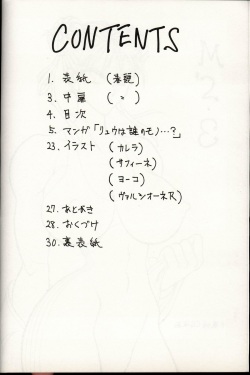 CONTENTS
1. 表紙 (春麗)
3. 中扉 (〃)
4. 目次
5. マンガ「リュウは誰のモノ…?」
23. イラスト (カレラ)
(サフィーネ)
(ヨーコ)
(ヴァルシオーネR)
27. あとがき
28. おくづけ
30. 裏表紙